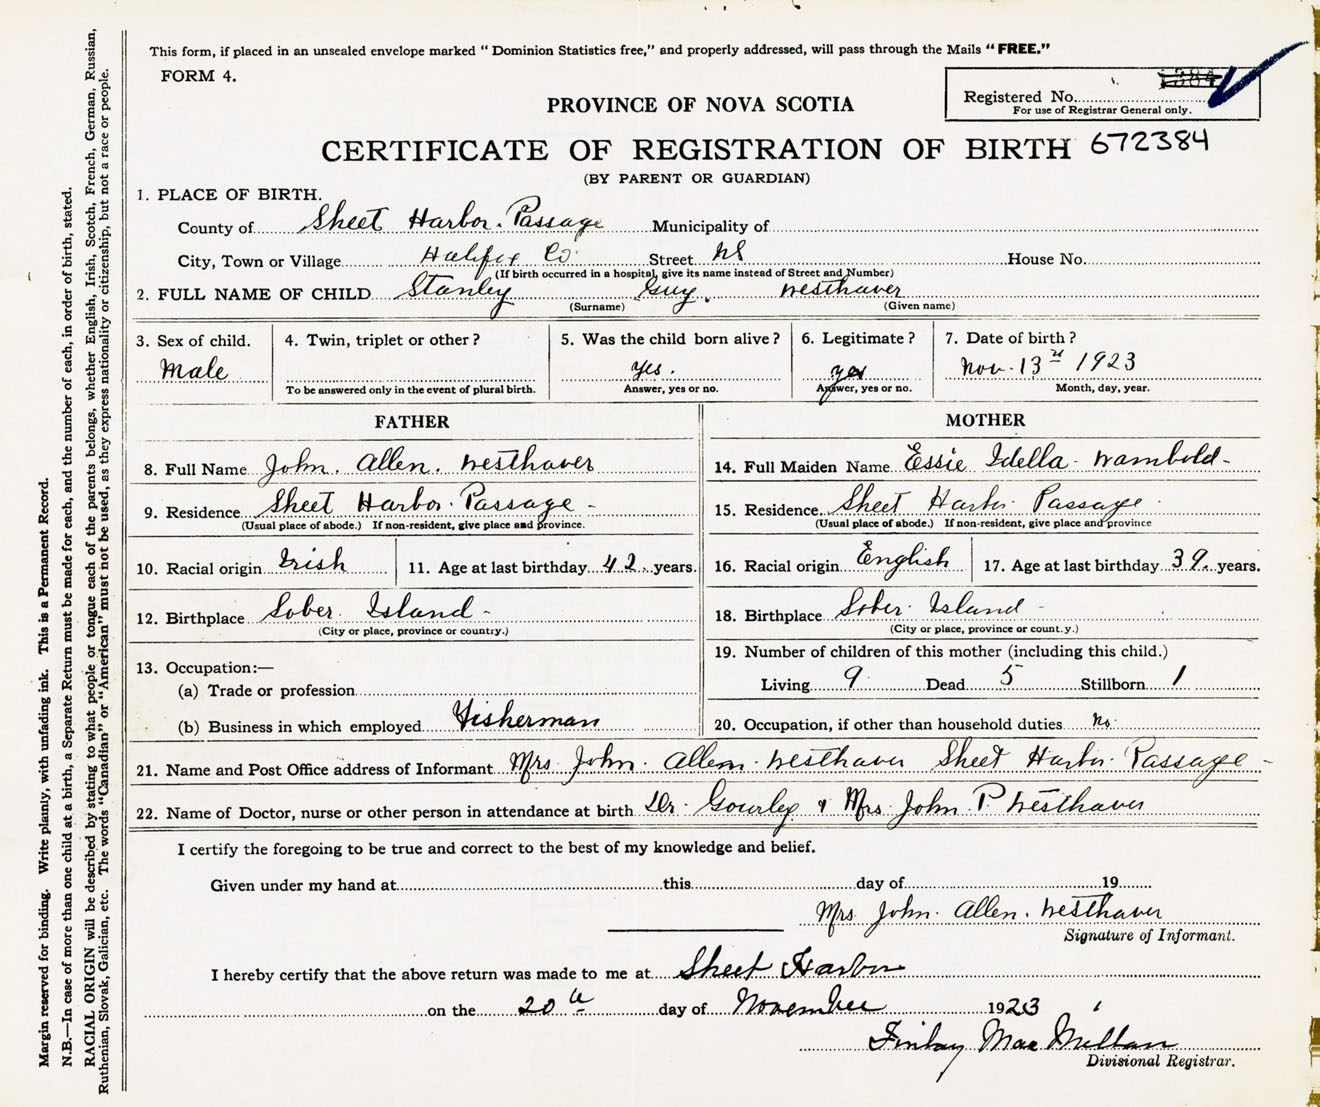 This form, if placed in an unsealed envelope marked "Dominion Statistics free," and properly addressed, will pass through the Mails "FREE."
FORM 4.
Registered No.
For use of Registrar General only.
PROVINCE OF NOVA SCOTIA
CERTIFICATE OF REGISTRATION OF BIRTH 672384
(BY PARENT OR GUARDIAN)
1. PLACE OF BIRTH.
County of Sheet Harbor. Passage Municipality of
City, Town or Village Halifax Co Street NS House No.
(If birth occurred in a hospital, give its name instead of Street and Number)
2. FULL NAME OF CHILD Stanley Guy. Westhaver
(Surname) (Given name)
3. Sex of child. 4. Twin, triplet or other? 5. Was the child born alive? 6. Legitimate? 7. Date of birth?
Male yes. yes Nov. 13 1923
To be answered only in the event of plural birth. Answer, yes or no. Answer, yes or no. Month, day, year.
FATHER MOTHER
8. Full Name John. Allen. Westhaver 14. Full Maiden Name Essie Idella - Wambold -
9. Residence Sheet Harbor. Passage - 15. Residence. Sheet Harbor Passage
(Usual place of abode.) If non-resident, give place and province. (Usual place of abode.) If non-resident, give place and province
10. Racial origin Irish 11. Age at last birthday 42 years. 16. Racial origin English 17. Age at last birthday 39 years.
12. Birthplace Sober Island - 18. Birthplace Sober Island -
(City or place, province or country.) (City or place, province or coun.y.)
13. Occupation:— 19. Number of children of this mother (including this child.)
(a) Trade or profession Living 9 Dead 5 Stillborn 1
(b) Business in which employed Fisherman 20. Occupation, if other than household duties No.
21. Name and Post Office address of Informant Mrs John. Allen. Westhaver Sheet Harbor. Passage -
22. Name of Doctor, nurse or other person in attendance at birth Dr. Gourley & Mrs John P. Westhaver
I certify the foregoing to be true and correct to the best of my knowledge and belief.
Given under my hand at this day of 19
Mrs John. Allen. Westhaver
Signature of Informant.
I hereby certify that the above return was made to me at Sheet Harbor
on the 20th day of November 1923
Finlay MacMillan
Divisional Registrar.
Margin reserved for binding. Write plainly, with unfading ink. This is a Permanent Record.
N.B.—In case of more than one child at a birth, a Separate Return must be made for each, and the number of each, in order of birth, stated.
RACIAL ORIGIN will be described by stating to what people or tongue each of the parents belongs, whether English, Irish, Scotch, French, German, Russian,
Ruthenian, Slovak, Galician, etc. The words "Canadian" or "American" must not be used, as they express nationality or citizenship, but not a race or people.